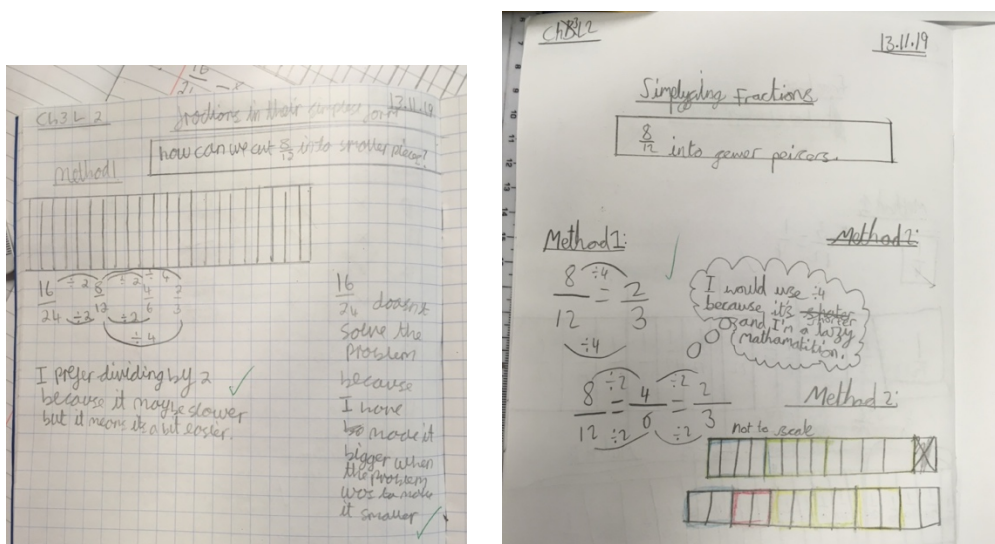 16
Ch3 L 2
13.11.19
fractions in their simplest form
how can we cut 8/12 into smaller pieces?
Method 1
÷2 ÷2 ÷4
16/24 8/12 4/6 2/3
÷2 ÷2
÷4
I prefer dividing by 2
because it maybe slower
but it means its a bit easier.
16/24 doasnt
solve the
problem
because
I have
made it
bigger when
the problem
was to make
it smaller
L2
13.11.19
Simplyging Fractions
8/12 into gewer peicers.
Method 1:
÷4
8/12 = 2/3
÷4
Method 2:
I would use ÷4
because it's shorter
and I'm a lazy
mathamatition.
÷2 ÷2
8/12 = 4/6 = 2/3
÷2 ÷2
Method 2:
not to scale